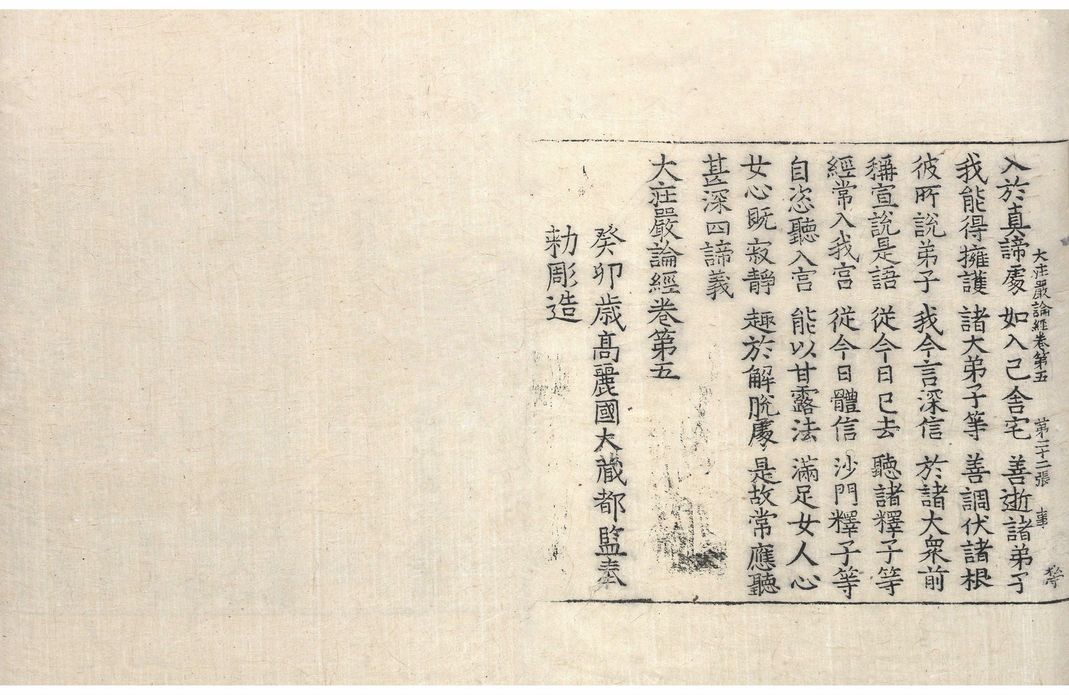 大莊嚴論經卷第五 第二十二張 事
入於真諦處 如入己舍宅 善逝諸弟子
我能得擁護 諸大弟子等 善調伏諸根
彼所說弟子 我今言深信 於諸大衆前
稱宣說是語 從今日已去 聽諸釋子等
經常入我宮 從今日體信 沙門釋子等
自恣聽入宮 能以甘露法 滿足女人心
女心既寂靜 趣於解脫處 是故常應聽
甚深四諦義
大莊嚴論經卷第五
癸卯歲高麗國大藏都監奉
勅彫造